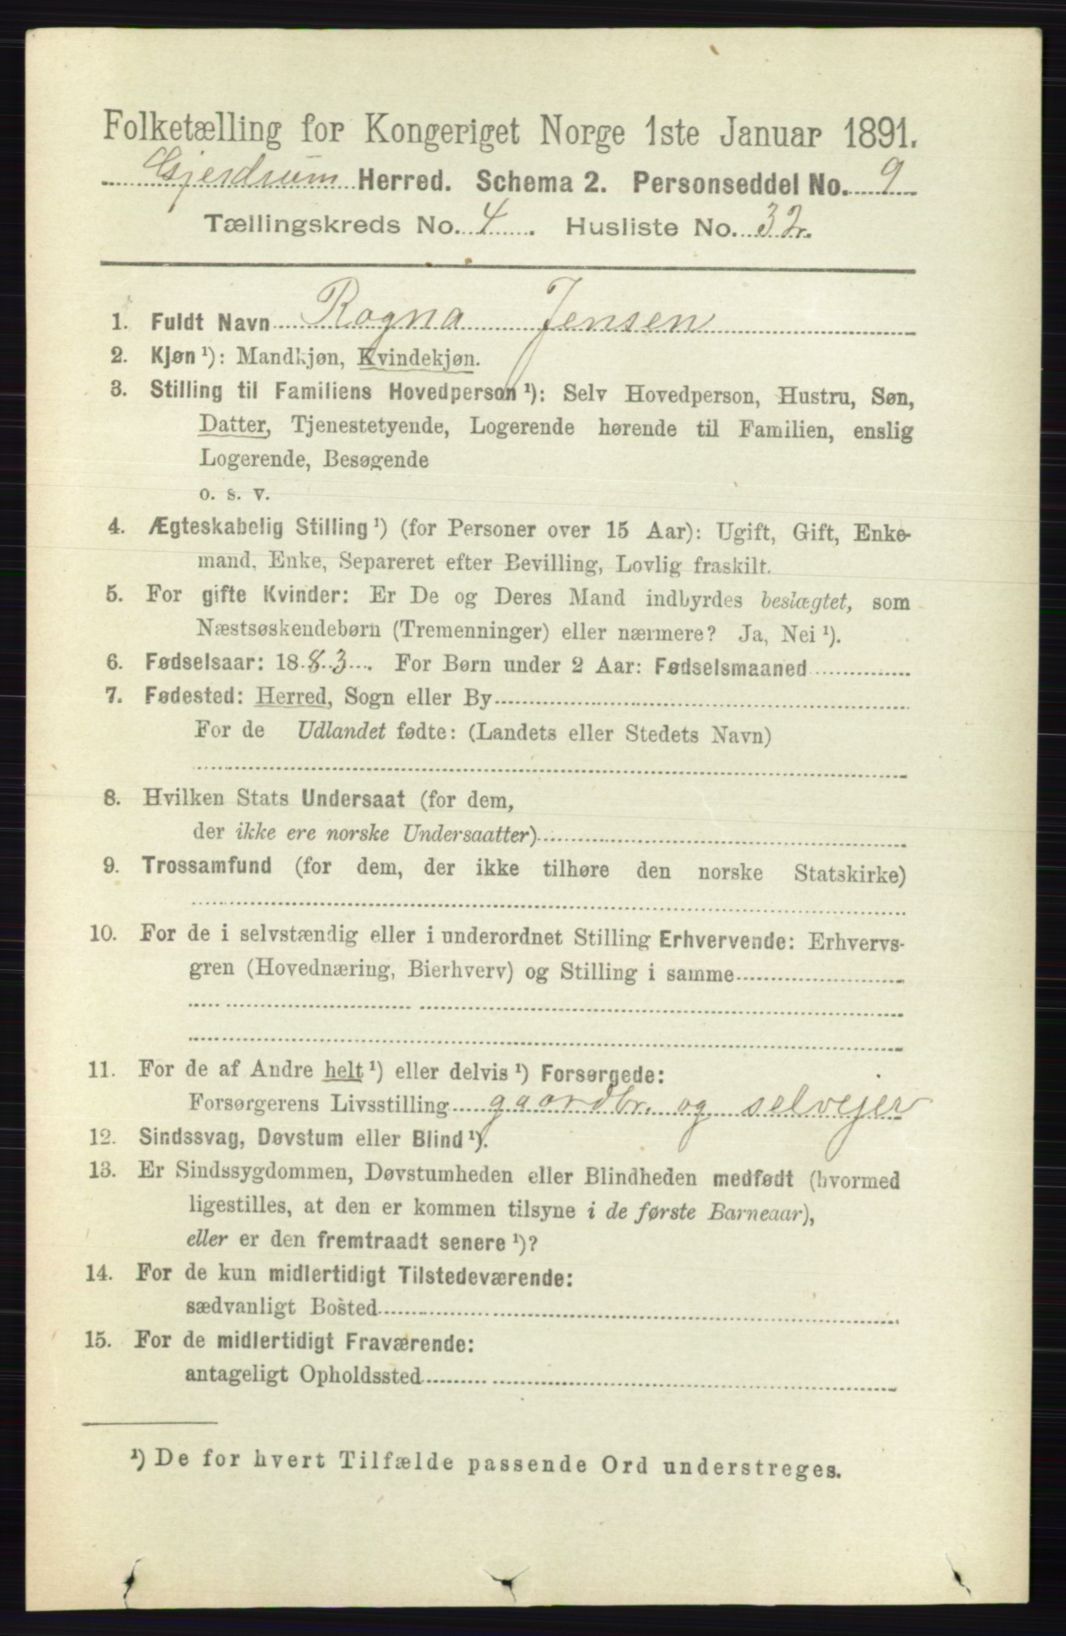 Folketælling for Kongeriget Norge 1ste Januar 1891.
Gjerdrum Herred. Schema 2. Personseddel No. 9
Tællingskreds No. 4. Husliste No. 32.
1. Fuldt Navn Ragna Jensen
2. Kjøn ¹): Mandkjøn, Kvindekjøn.
3. Stilling til Familiens Hovedperson ¹): Selv Hovedperson, Hustru, Søn,
Datter, Tjenestetyende, Logerende hørende til Familien, enslig
Logerende, Besøgende
o. s. v.
4. Ægteskabelig Stilling ¹) (for Personer over 15 Aar): Ugift, Gift, Enke-
mand, Enke, Separeret efter Bevilling, Lovlig fraskilt.
5. For gifte Kvinder: Er De og Deres Mand indbyrdes beslægtet, som
Næstsøskendebørn (Tremenninger) eller nærmere? Ja, Nei ¹).
6. Fødselsaar: 1883. For Børn under 2 Aar: Fødselsmaaned
7. Fødested: Herred, Sogn eller By
For de Udlandet fødte: (Landets eller Stedets Navn)
8. Hvilken Stats Undersaat (for dem,
der ikke ere norske Undersaatter)
9. Trossamfund (for dem, der ikke tilhøre den norske Statskirke)
10. For de i selvstændig eller i underordnet Stilling Erhvervende: Erhvervs-
gren (Hovednæring, Bierhverv) og Stilling i samme
11. For de af Andre helt ¹) eller delvis ¹) Forsørgede:
Forsørgerens Livsstilling gaardbr. og selvejer
12. Sindssvag, Døvstum eller Blind ¹).
13. Er Sindssygdommen, Døvstumheden eller Blindheden medfødt (hvormed
ligestilles, at den er kommen tilsyne i de første Barneaar),
eller er den fremtraadt senere ¹)?
14. For de kun midlertidigt Tilstedeværende:
sædvanligt Bosted
15. For de midlertidigt Fraværende:
antageligt Opholdssted
¹) De for hvert Tilfælde passende Ord understreges.